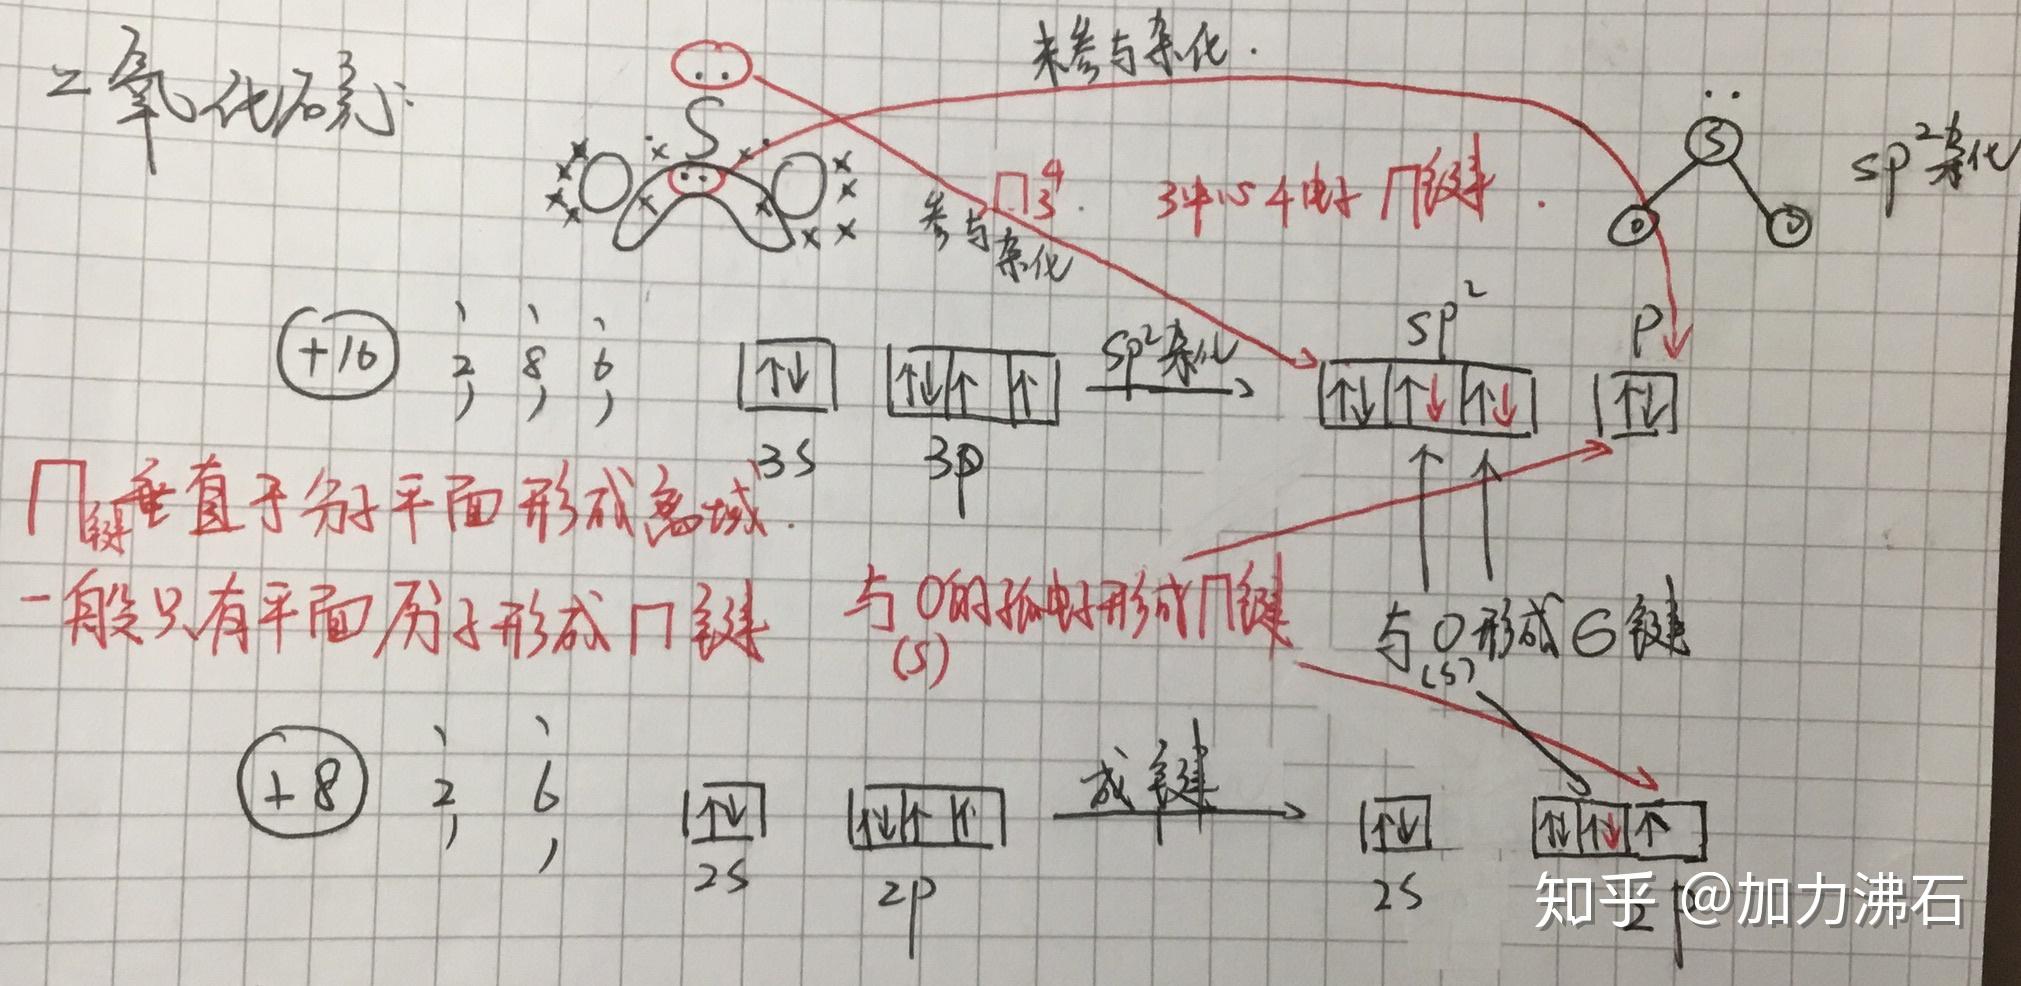 二氧化硫:
未参与杂化.
S
O O
参与杂化
Π₃⁴. 3中心4电子Π键.
S
O O
sp²杂化
+16 2, 8, 6,
3s 3p
sp²杂化
sp² p
Π键垂直于分子平面形成离域.
一般只有平面分子形成Π键
与O的孤电子形成Π键
(S)
与O形成σ键
(S)
+8 2, 6,
2s 2p
成键
2s 2p
知乎 @加力沸石